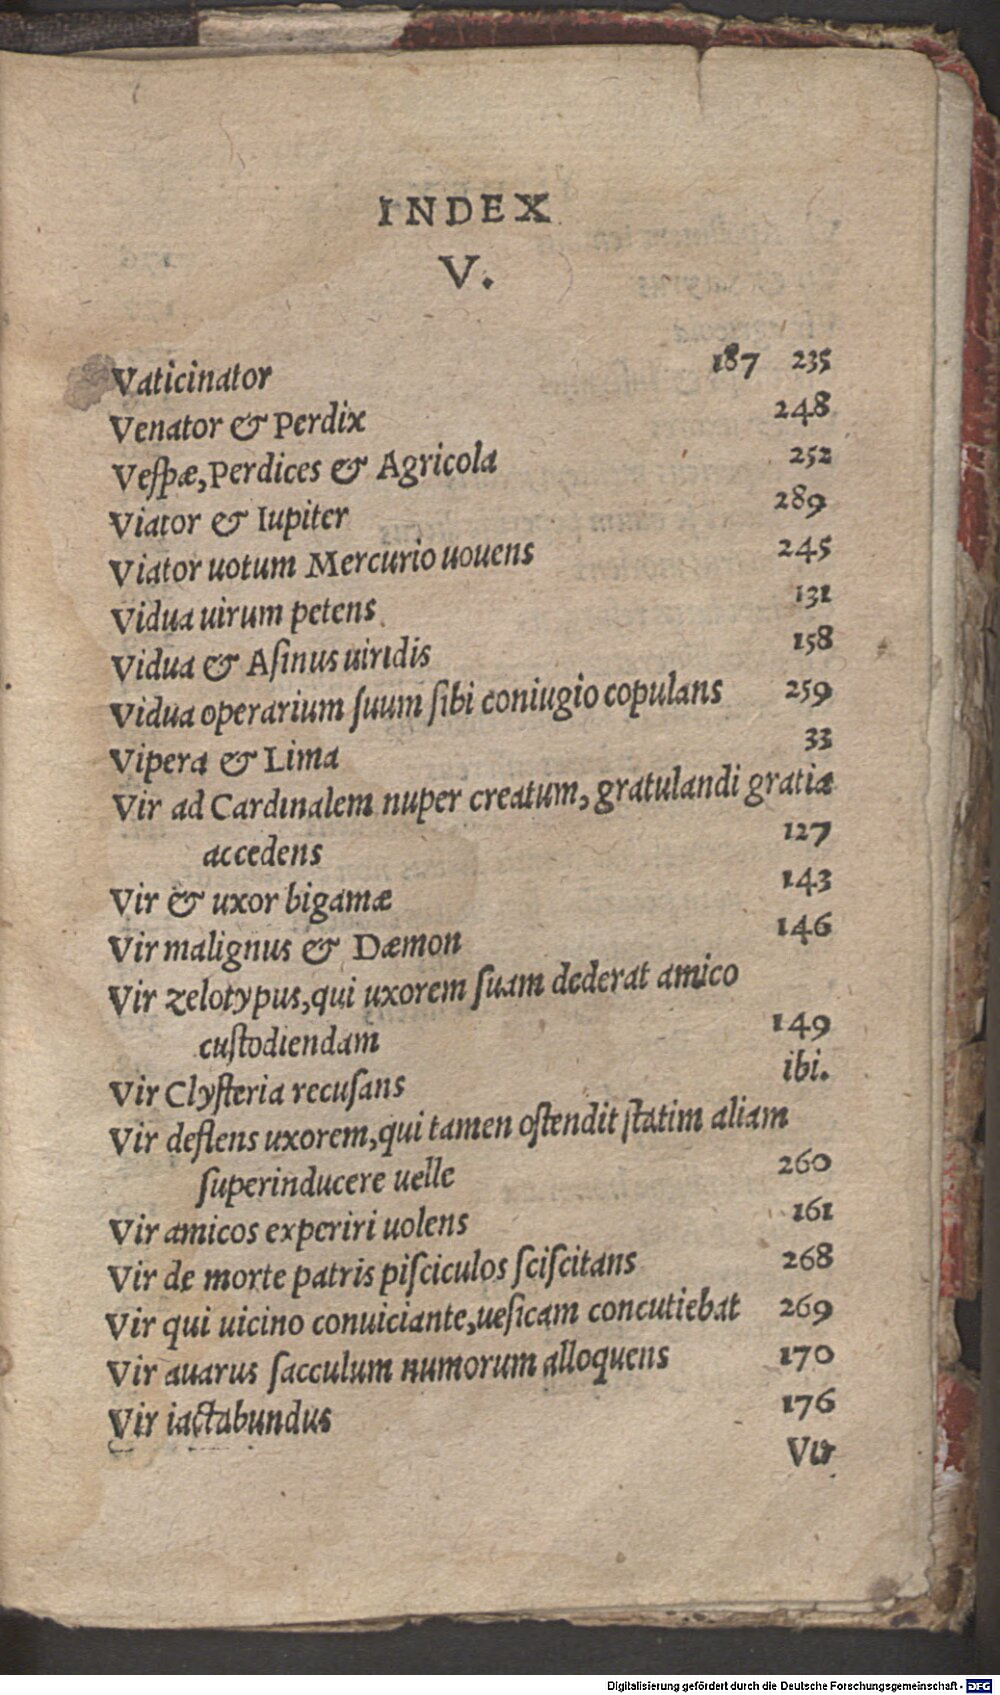 INDEX
V.
Vaticinator 187 235
Venator & Perdix 248
Veſpæ, Perdices & Agricola 252
Viator & Iupiter 289
Viator uotum Mercurio uouens 245
Vidua uirum petens 131
Vidua & Aſinus uiridis 158
Vidua operarium ſuum ſibi coniugio copulans 259
Vipera & Lima 33
Vir ad Cardinalem nuper creatum, gratulandi gratia
accedens 127
Vir & uxor bigamæ 143
Vir malignus & Dæmon 146
Vir zelotypus, qui uxorem ſuam dederat amico
cuſtodiendam 149
Vir Clyſteria recuſans ibi.
Vir deflens uxorem, qui tamen oſtendit ſtatim aliam
ſuperinducere uelle 260
Vir amicos experiri uolens 161
Vir de morte patris piſciculos ſciſcitans 268
Vir qui uicino conuiciante, ueſicam concutiebat 269
Vir auarus ſacculum numorum alloquens 170
Vir iactabundus 176
Vir
Digitalisierung gefördert durch die Deutsche Forschungsgemeinschaft - DFG